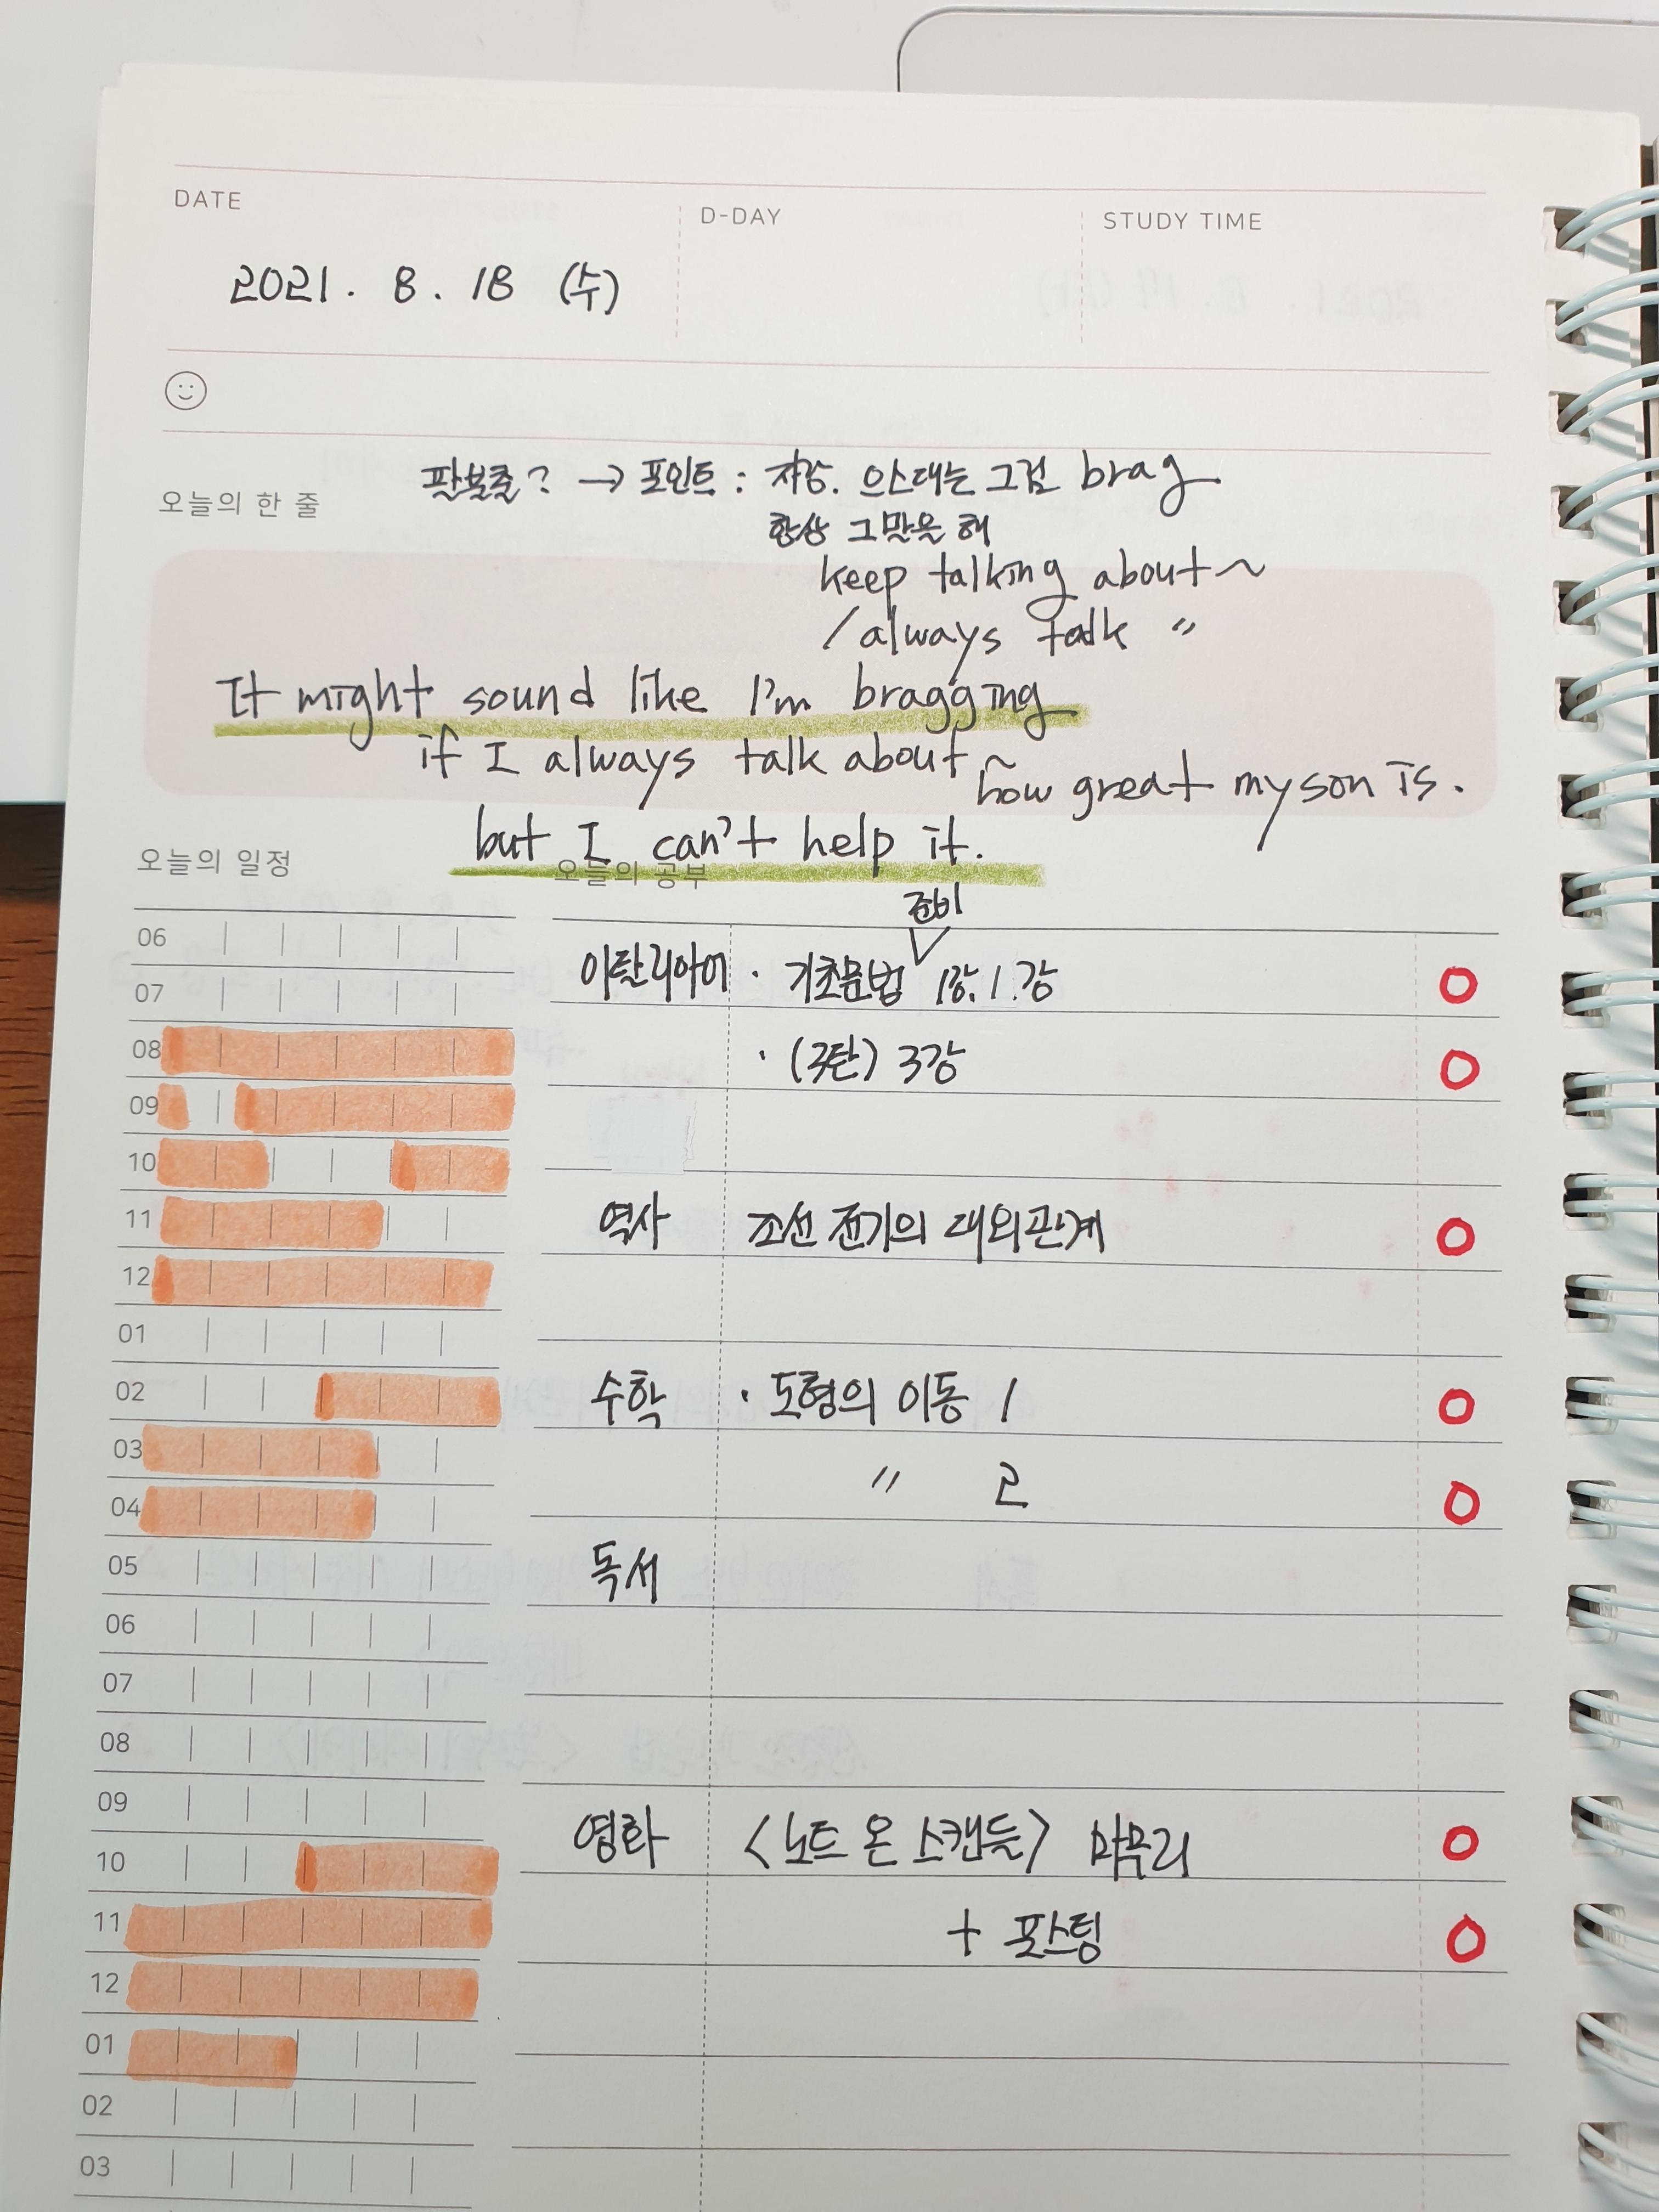 DATE
D-DAY
STUDY TIME
2021. 8. 18 (수)
오늘의 한 줄
팔불출? → 포인트 : 자랑. 으스대는 그런 brag
항상 그 말을 해
keep talking about ~
/ always talk 〃
It might sound like I'm bragging
if I always talk about ~ how great my son is.
but I can't help it.
오늘의 일정
오늘의 공부
준비
이탈리아어 · 기초문법 1강. 1강
· (3탄) 3강
역사 조선 전기의 대외관계
수학 · 도형의 이동 1
〃 2
독서
영화 <노트 온 스캔들> 마무리
+ 포스팅
06
07
08
09
10
11
12
01
02
03
04
05
06
07
08
09
10
11
12
01
02
03